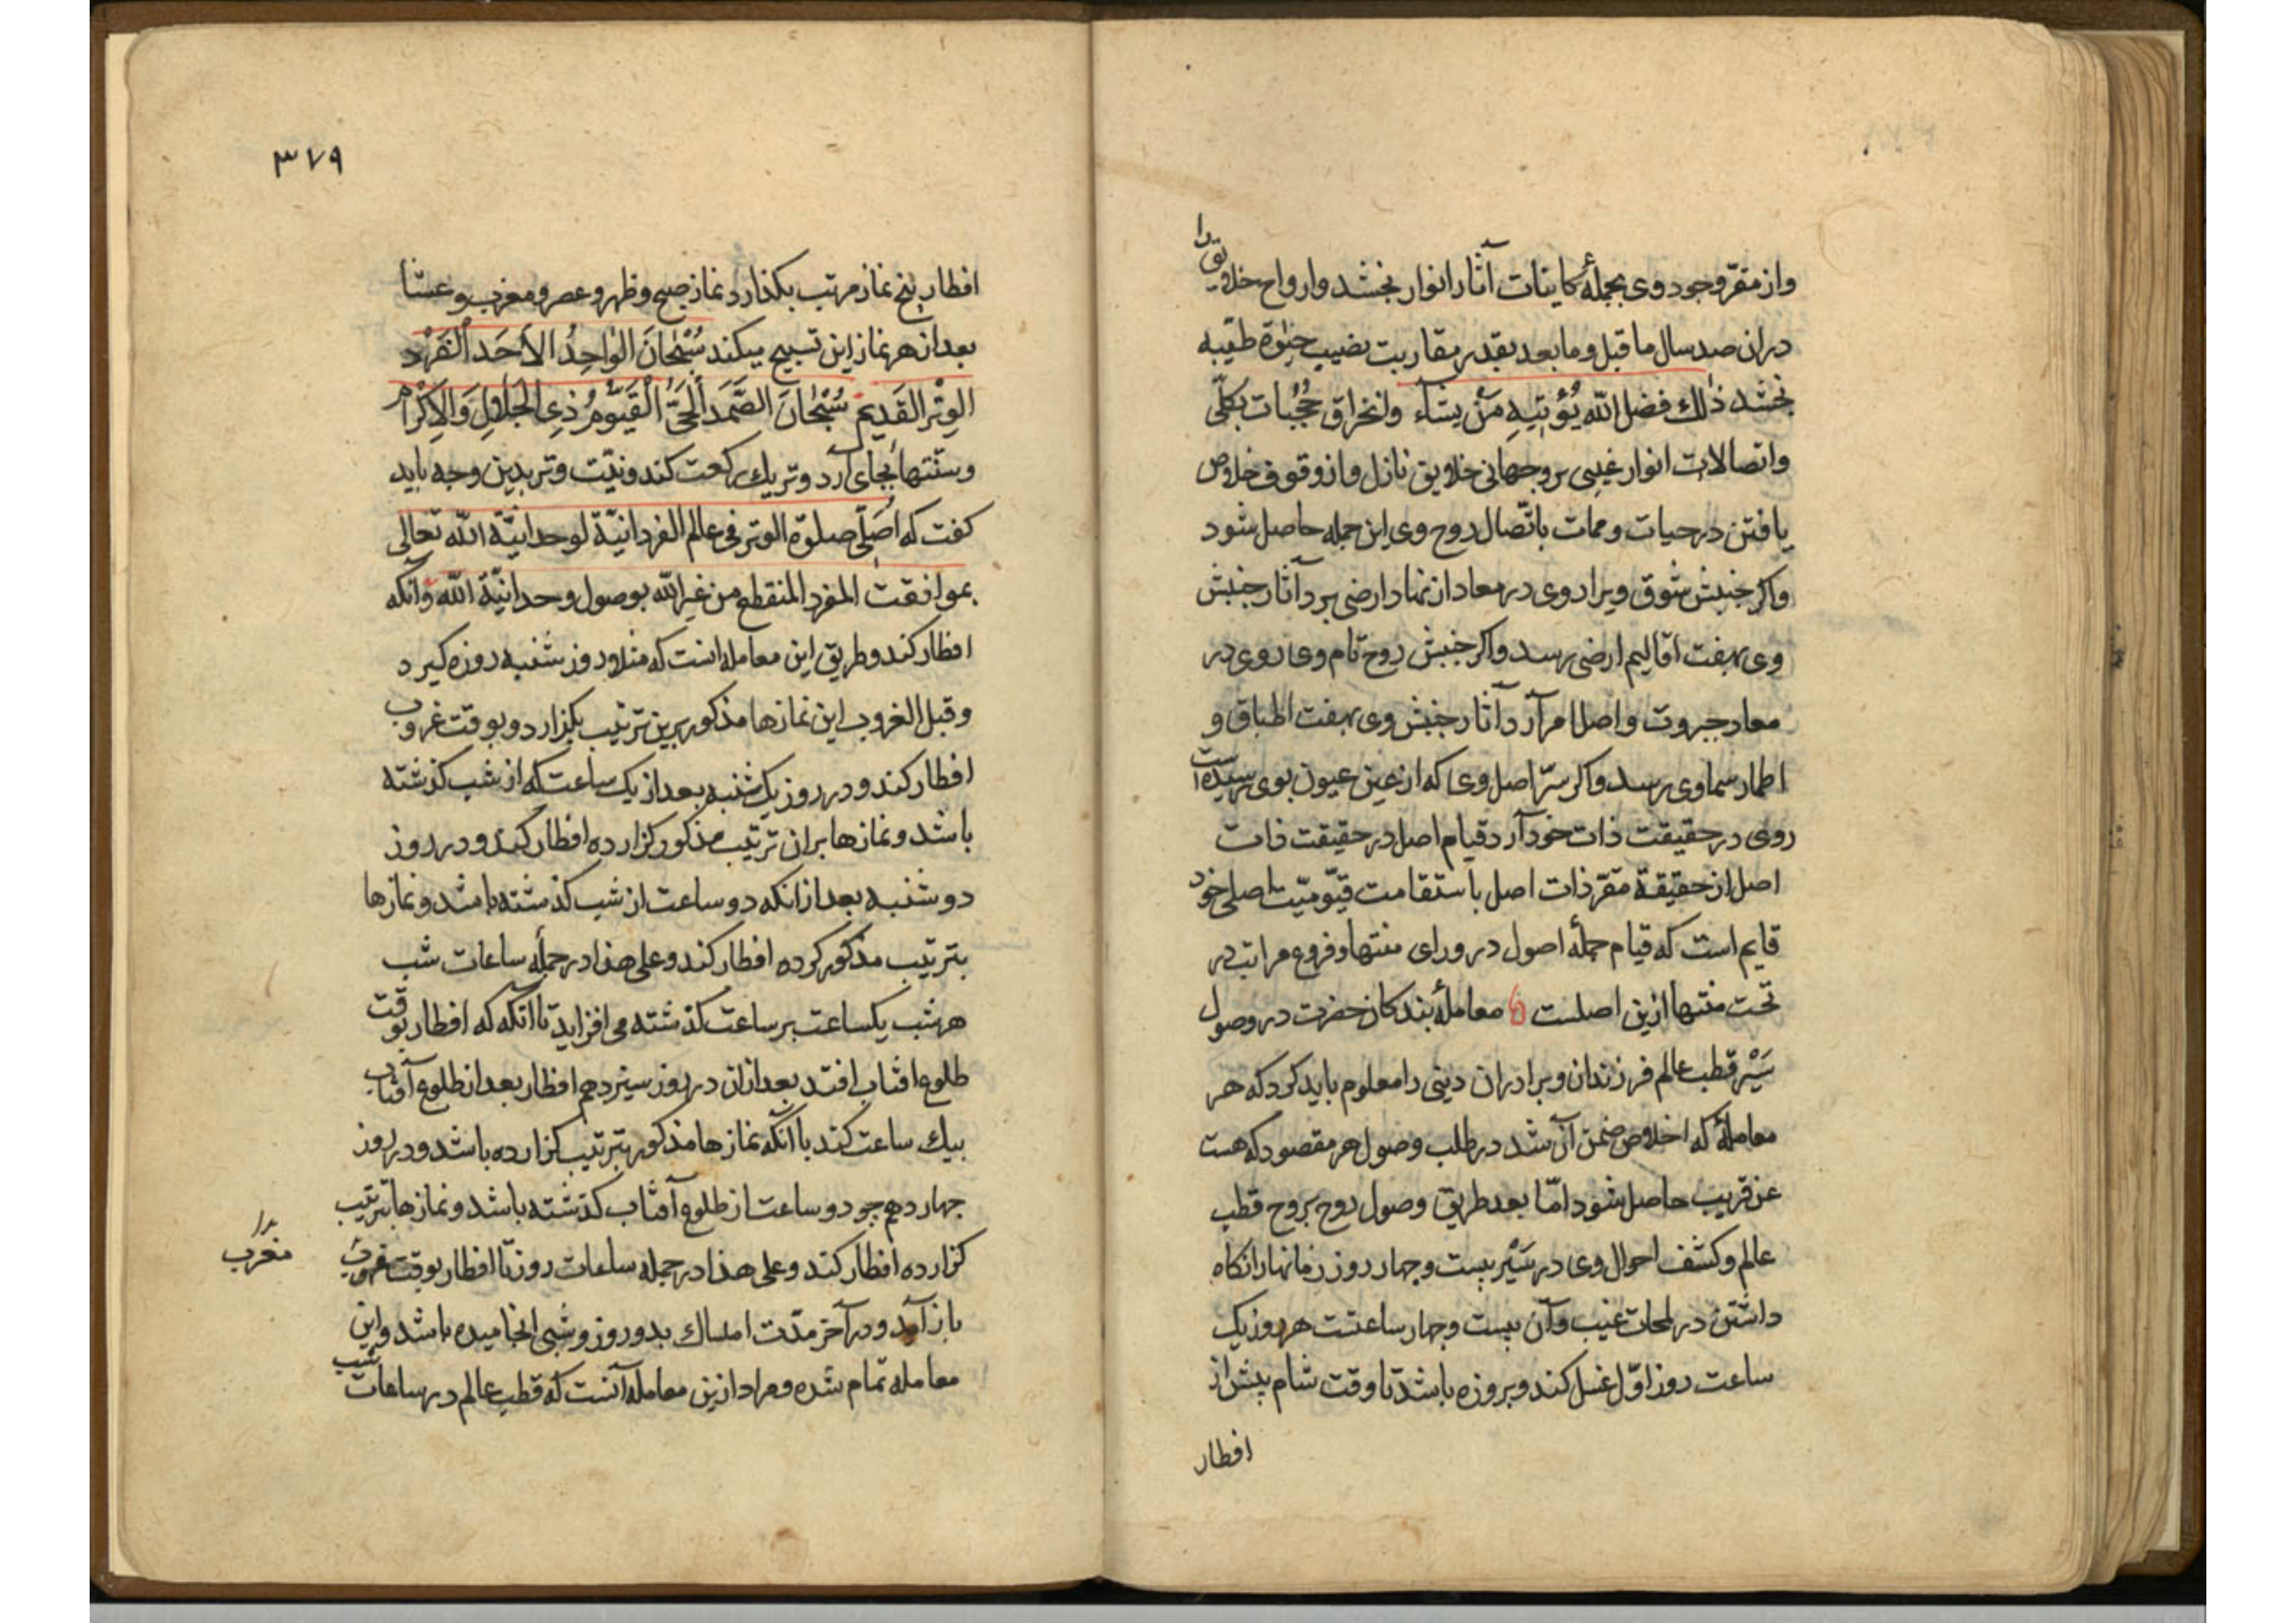 واز مقرّ وجود وی بجملهٔ کاینات آثار انوار بخشد وارواح خلایق را
دران صد سال ما قبل وما بعد بقدر مقاربت نصیب حیٰوة طیّبه
بخشد ذٰلك فضل الله یُؤتیهِ مَنْ یشآء وانخراق حُجُبات بکلّی
واتصالات انوار غیبی بر وجهانی خلایق نازل واز وقوف خلاص
یافتن در حیات وممات باتّصال روح وی این جمله حاصل شود
واکر جنبش شوق ویرا روی در معاد از نهاد ارضی برد آثار جنبش
وی بهفت اقالیم ارضی رسد واکر جنبش روح تام وی روی در
معاد جبروت واصل امر آرد آثار جنبش وی بهفت اطباق و
اطمار سماوی رسد واکر سرّ اصل وی که از عین عیون بوی رسیده است
روی در حقیقت ذات خود آرد قیام اصل در حقیقت ذات
اصل از حقیقة مقرّ ذات اصل باستقامت قیّومیّت اصلی خود
قایم است که قیام جملهٔ اصول در ورای منتها وفروع مراتب در
تحت منتها ازین اصلست معاملهٔ بندکان حضرت در وصول
سَیْر قطب عالم فرزندان وبرادران دینی را معلوم باید کرد که هر
معاملهٔ که اخلاص ضمن آن شد در طلب وصول هر مقصود که هست
عن قریب حاصل شود امّا بعد طریق وصول روح بروح قطب
عالم وکشف احوال وی در سَیْر بیست وچهار روز زمانها را نکاه
داشتن در لمحات غیب وآن بیست وچهار ساعتست هر روز یک
ساعت روز اوّل غسل کند وبروزه باشد تا وقت شام پیش از
افطار
۳۷۹
افطار پنج نماز مرتب بکذارد نماز صبح وظهر وعصر ومغرب وعشا
بعد از هر نماز این تسبیح میکند سُبْحٰانَ الوٰاحِدُ الأحَد ألْفَرْد
الوِتْر القَدِیم سُبْحٰانَ الصَّمَد ألحَیُّ القَیّومُ ذِی الْجَلٰالِ وَالإکْرام
وسنّتها بجای آرد وتر یك رکعت کند ونیّت وتر بدین وجه باید
کفت که اصَلّی صلوٰة الوتر فی عالم الفردانیّة لوحدانیّة الله تعالی
بموافقت المفرد المنقطع من غیر الله بوصول وحدانیّة الله وآنکه
افطار کند وطریق این معامله است که مثلا روز شنبه روزه کیرد
وقبل الغروب این نمازها مذکور برین ترتیب بکزارد وبوقت غروب
افطار کند ودر روز یک شنبه بعد از یک ساعت که از شب کذشته
باشد ونمازها بران ترتیب مذکور کزارده افطار کند ودر روز
دو شنبه بعد از انکه دو ساعت از شب کذشته باشد ونمازها
بترتیب مذکور کرده افطار کند وعلی هذا در جملهٔ ساعات شب
هر شب یکساعت بر ساعت کذشته می افزاید تا آنکه که افطار بوقت
طلوع افتاب افتد بعد ازان در روز سیزدهم افطار بعد از طلوع آفتاب
بیك ساعت کند با آنکه نمازها مذکور بترتیب کزارده باشد ودر روز
چهاردهم چو دو ساعت از طلوع آفتاب کذشته باشد ونمازها بترتیب
کزارده افطار کند وعلی هذا در جمله ساعات روز تا افطار بوقت
مغرب
باز آمد ودر آخر مدّت امساك بدو روز وشبی انجامیده باشد واین
معامله تمام شده ومراد ازین معامله آنست که قطب عالم در ساعات شب